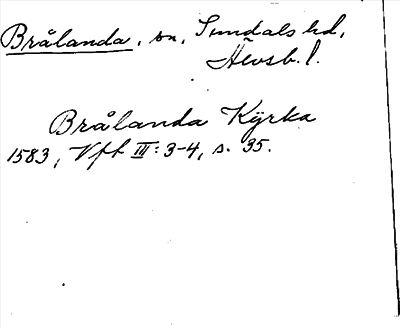 Brålanda, sn, Sundals hd,
Älvsb. l.
Brålanda Kÿrka
1583, Vft III: 3-4, s. 35.